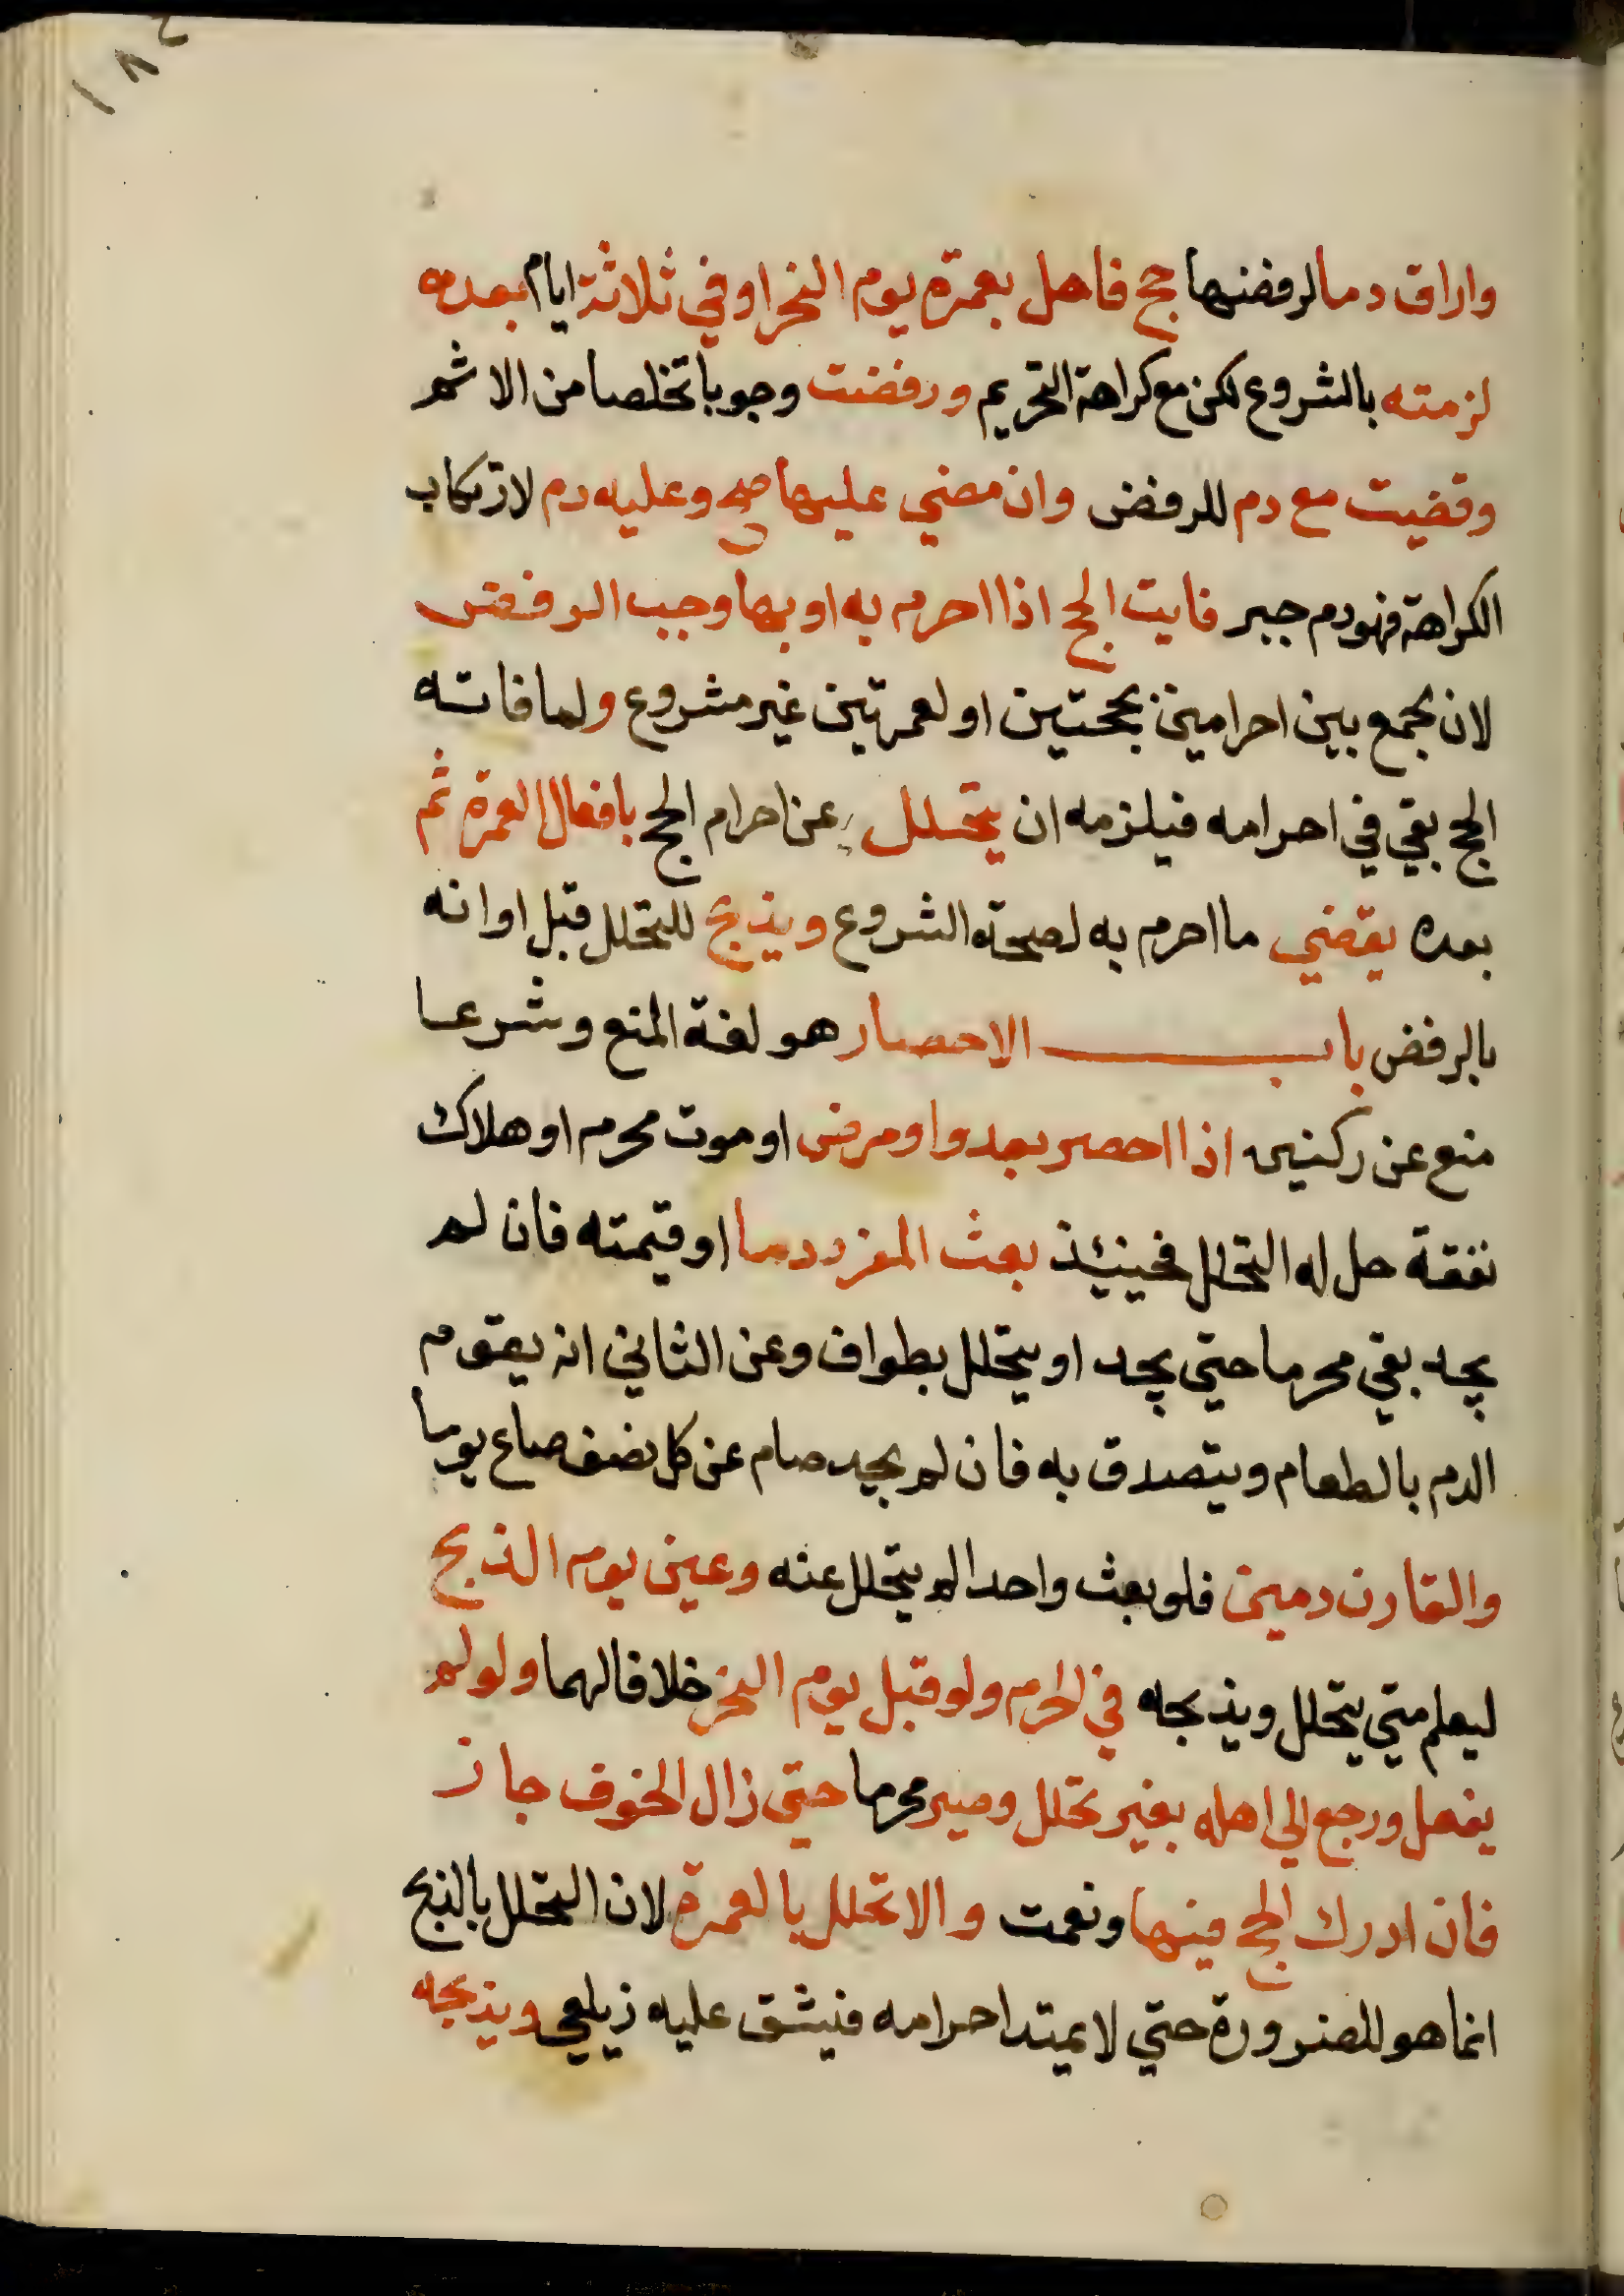 ١٨٤
واراق دما لرفضها حج فاهل بعمرة يوم النحر او في ثلاثة ايام بعده
لزمته بالشروع لكن مع كراهة التحريم ورفضت وجوبا تخلصا من الاثم
وقضيت مع دم للرفض وان مضي عليها صح وعليه دم لارتكاب
الكراهة فهو دم جبر فايت الحج اذا احرم به او بها وجب الرفض
لان يجمع بين احرامين بحجتين او لعمرتين غير مشروع ولما فاته
الحج بقي في احرامه فيلزمه ان يتحلل عن احرام الحج بافعال العمرة ثم
بعده يقضي ما احرم به لصحة الشروع ويذبح للتحلل قبل اوانه
بالرفض باب الاحصار هو لغة المنع وشرعا
منع عن ركنين اذا احصر بعدو او مرض او موت محرم او هلاك
نفقة حل له التحلل فحينئذ بعث المفرد دما او قيمته فان لم
يجد بقي محرما حتي يجد او يتحلل بطواف وعن الثاني انه يقوم
الدم بالطعام ويتصدق به فان لم يجد صام عن كل نصف صاع يوما
والقارن دمين فلو بعث واحدا لم يتحلل عنه وعين يوم الذبح
ليعلم متي يتحلل ويذبحه في الحرم ولو قبل يوم النحر خلافا لهما ولو لم
يفعل ورجع الي اهله بغير تحلل وصبر محرما حتي زال الخوف جاز
فان ادرك الحج فبها ونعمت والا تحلل بالعمرة لان التحلل بالذبح
انما هو للضرورة حتي لا يمتد احرامه فيشق عليه زيلعي ويذبحه